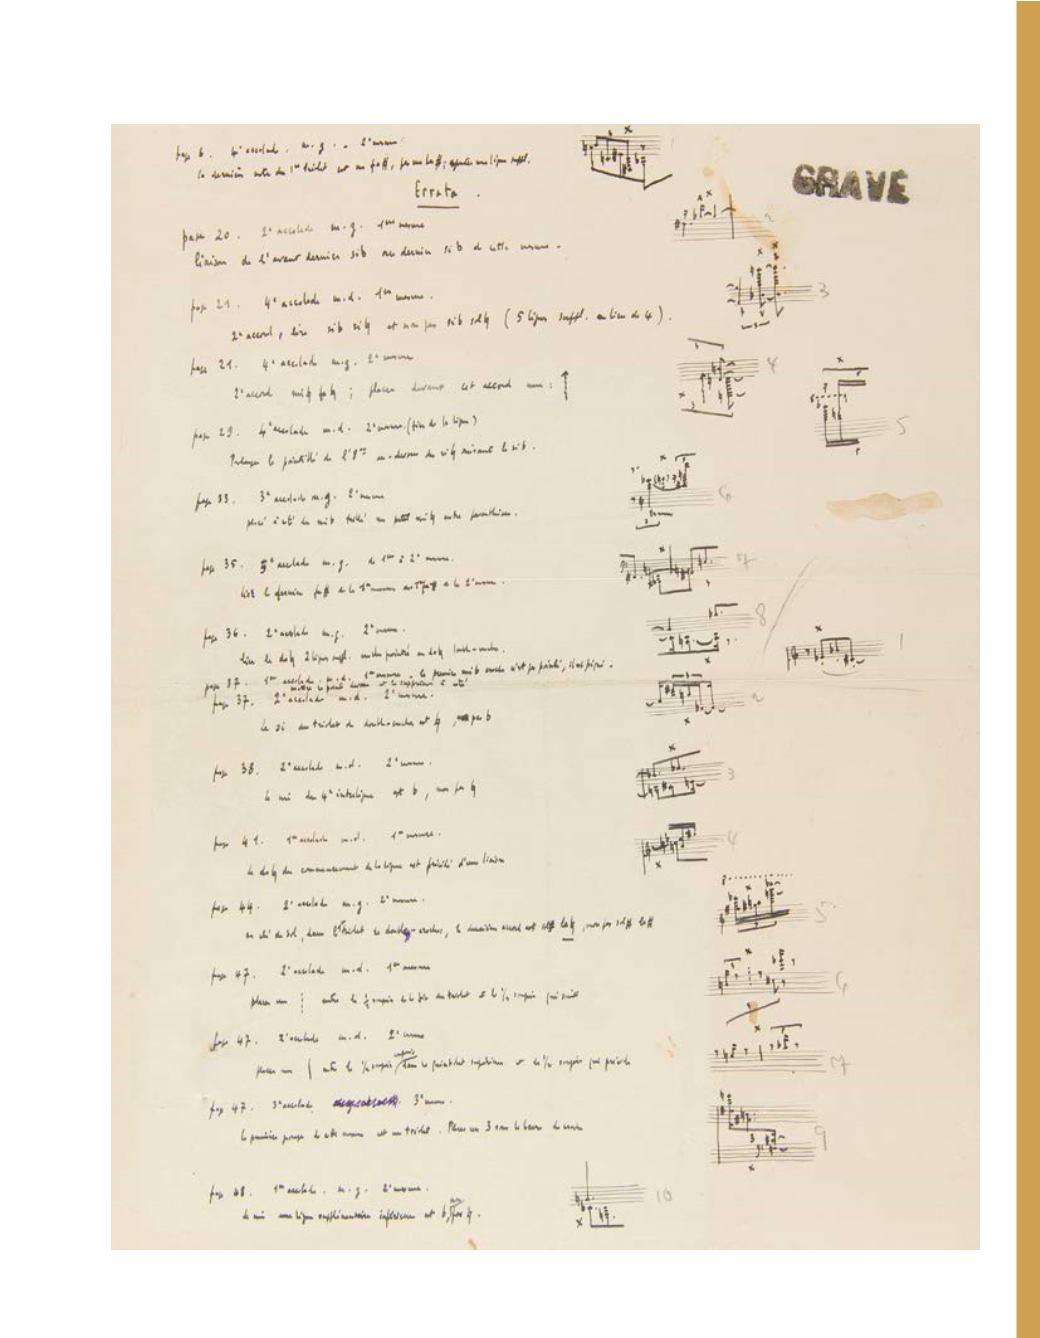 page 6. 4e accolade. m.g. 2e mesure.
la dernière note du 1er triolet est un fa#, pas un la#; ligne suppl.
GRAVE
Errata.
page 20. 2e accolade m.g. 1ère mesure
liaison de l'avant dernier sib au dernier sib de cette mesure.
page 21. 4e accolade m.d. 1ère mesure.
2e accord, lire sib si♮ et non pas sib sol♮ (5 lignes suppl. au lieu de 4).
page 21. 4e accolade m.g. 2e mesure
2e accord mi♮ fa♮; placer devant cet accord une: ↑
page 29. 4e accolade m.d. 2e mesure. (fin de la ligne)
Prolonger le pointillé de l'8va au-dessus du si♮ suivant le sib.
page 33. 3e accolade m.g. 2e mesure
placé à côté du mib trillé un petit mi♮ entre parenthèses.
page 35. accolade m.g. de 1ère à 2e mesure.
lier le dernier fa# de la 1ère mesure au 1er fa# de la 2e mesure.
page 36. 2e accolade m.g. 2e mesure.
lier le do♮ 2 lignes suppl. croche pointée au do♮ double-croche.
page 37. 1ère accolade. m.d. 1ère mesure le premier mib croche n'est pas pointé, il est piqué.
mettre le point dessus et le supprimer à côté
page 37. 2e accolade m.d. 2e mesure.
le si du triolet de double-croches est ♮, pas b
page 38. 2e accolade m.d. 2e mesure.
le mi du 4e interligne est b, non pas ♮
page 41. 1ère accolade m.d. 1ère mesure.
le do♮ du commencement de la ligne est précédé d'une liaison
page 44. 2e accolade m.g. 2e mesure.
en clé de sol, dans le triolet de doubles-croches, le deuxième accord est sol# la♮, non pas sol# la#
page 47. 2e accolade m.d. 1ère mesure
placer un ⋮ entre le ½ soupir de la fin du triolet et le ½ soupir qui suit
page 47. 2e accolade m.d. 2e mesure
placer un entre le ½ soupir dans le quintolet supérieur et le ½ soupir qui précède
page 47. 3e accolade 3e mesure.
le premier groupe de cette mesure est un triolet. Placer un 3 sous la barre de croche
page 48. 1ère accolade. m.g. 2e mesure.
le mi une ligne supplémentaire inférieure est b, non pas ♮.
1
2
3
4
5
6
7
8
1
2
3
4
5
6
7
9
10